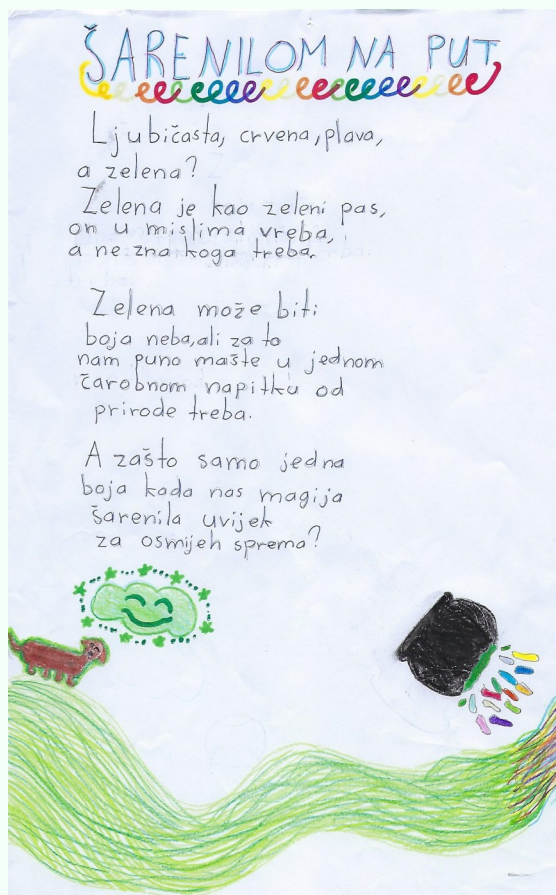 ŠARENILOM NA PUT
Ljubičasta, crvena, plava,
a zelena?
Zelena je kao zeleni pas,
on u mislima vreba,
a ne zna koga treba.
Zelena može biti
boja neba, ali za to
nam puno mašte u jednom
čarobnom napitku od
prirode treba.
A zašto samo jedna
boja kada nas magija
šarenila uvijek
za osmijeh sprema?